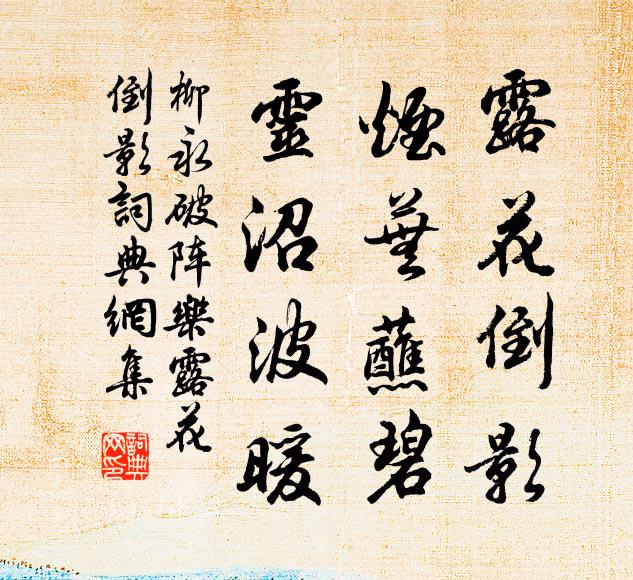 露花倒影
煙蕪蘸碧
靈沼波暖
柳永破阵樂露花
倒影詞典網集
詞典
网印